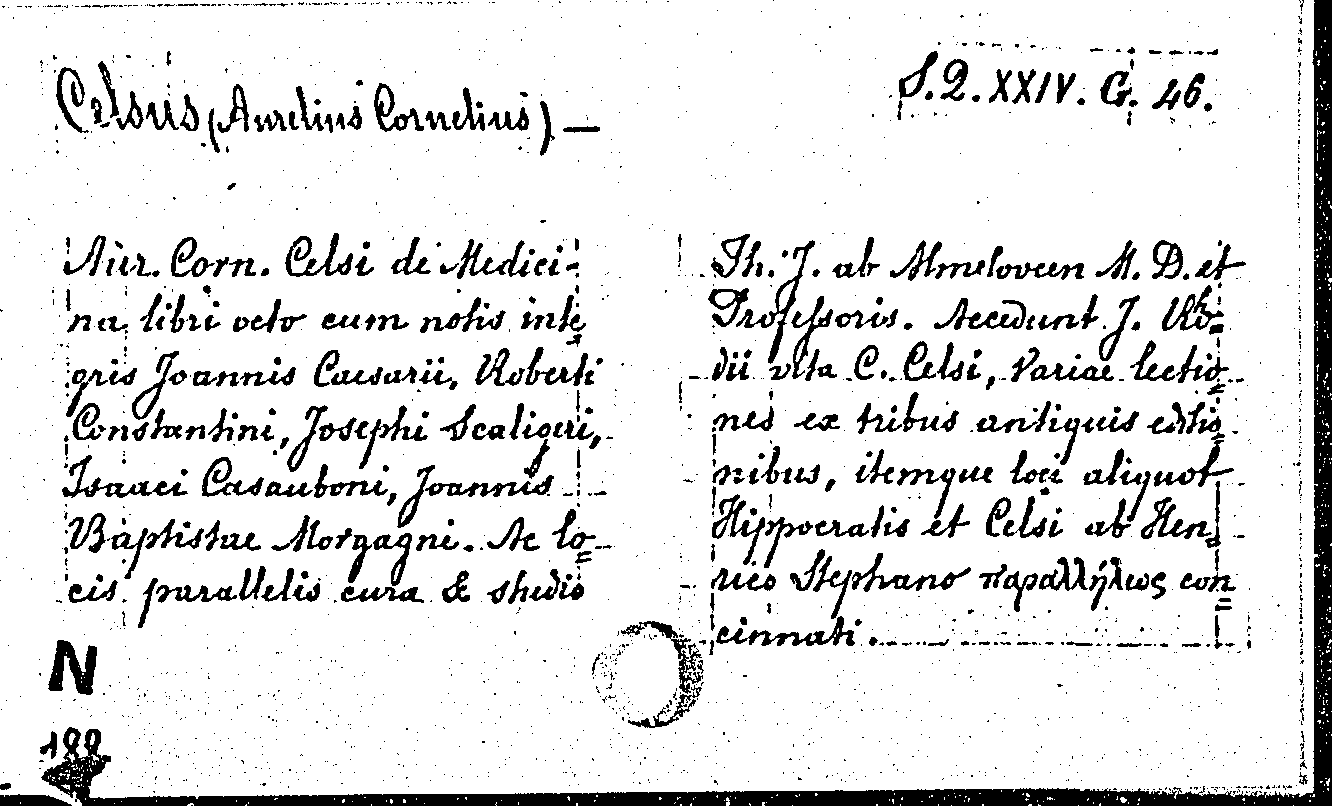 Celsus (Aurelius Cornelius) —
S.2.XXIV. G. 46.
Aur. Corn. Celsi de Medici-
na libri octo cum notis inte
gris Joannis Caesarii, Roberti
Constantini, Josephi Scaligeri,
Isaaci Casauboni, Joannis
Baptistae Morgagni. Ac lo=
cis parallelis cura & studio
Th. J. ab Almeloveen M. D. et
Professoris. Accedunt J. Rho=
dii vita C. Celsi, Variae lectio=
nes ex tribus antiquis editio=
nibus, itemque loci aliquot
Hippocratis et Celsi ab Hen=
rico Stephano παραλλήλως con=
cinnati.
N
188